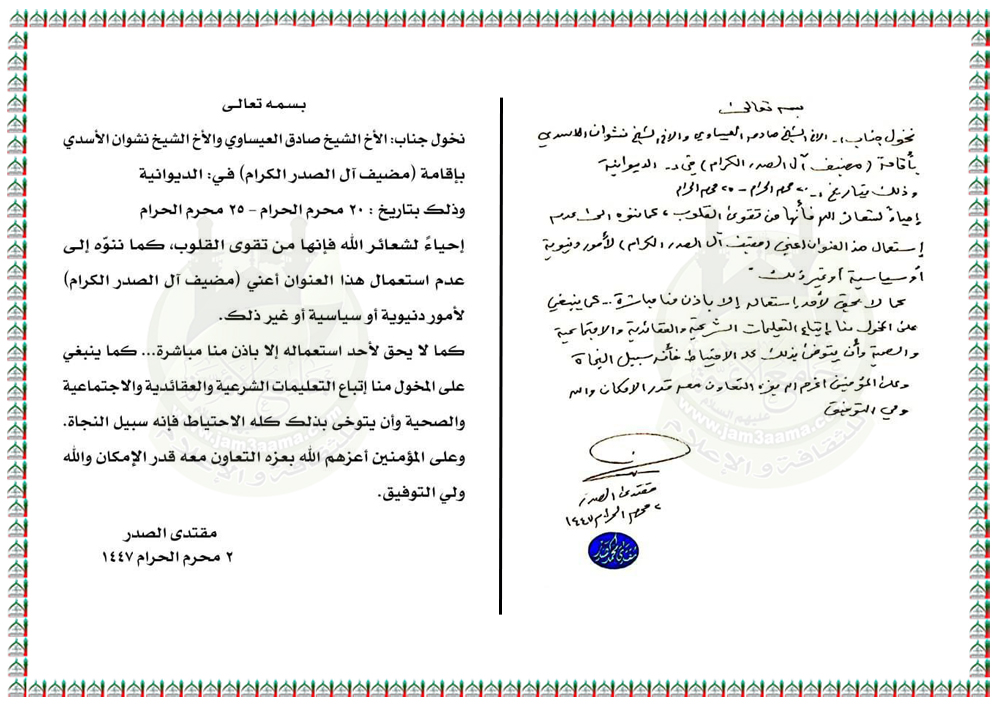 بسم تعالى
نخول جناب:ـ الاخ الشيخ صادق العيساوي والاخ الشيخ نشوان الاسدي
بأقامة (مضيف آل الصدر الكرام) في:ـ الديوانية
وذلك بتاريخ:ـ ٢٠ محرم الحرام - ٢٥ محرم الحرام
إحياءً لشعائر الله فأنها من تقوى القلوب، كما ننوه الى عدم
إستعمال هذا العنوان اعني (مضيف آل الصدر الكرام) لأمور دنيوية
أو سياسية أو غير ذلك.
كما لا يحق لأحد استعماله إلا باذن منا مباشرة... كما ينبغي
على المخول منا إتباع التعليمات الشرعية والعقائدية والاجتماعية
والصحية وأن يتوخى بذلك كله الاحتياط فأنه سبيل النجاة
وعلى المؤمنين اعزهم الله بعزه التعاون معه قدر الامكان والله
ولي التوفيق
مقتدى الصدر
٢ محرم الحرام ١٤٤٧
بسمه تعالى
نخول جناب: الأخ الشيخ صادق العيساوي والأخ الشيخ نشوان الأسدي
بإقامة (مضيف آل الصدر الكرام) في: الديوانية
وذلك بتاريخ : ٢٠ محرم الحرام - ٢٥ محرم الحرام
إحياءً لشعائر الله فإنها من تقوى القلوب، كما ننوّه إلى
عدم استعمال هذا العنوان أعني (مضيف آل الصدر الكرام)
لأمور دنيوية أو سياسية أو غير ذلك.
كما لا يحق لأحد استعماله إلا باذن منا مباشرة... كما ينبغي
على المخول منا إتباع التعليمات الشرعية والعقائدية والاجتماعية
والصحية وأن يتوخى بذلك كله الاحتياط فإنه سبيل النجاة.
وعلى المؤمنين أعزهم الله بعزه التعاون معه قدر الإمكان والله
ولي التوفيق.
مقتدى الصدر
٢ محرم الحرام ١٤٤٧
www.jam3aama.com
للثقافة والإعلام